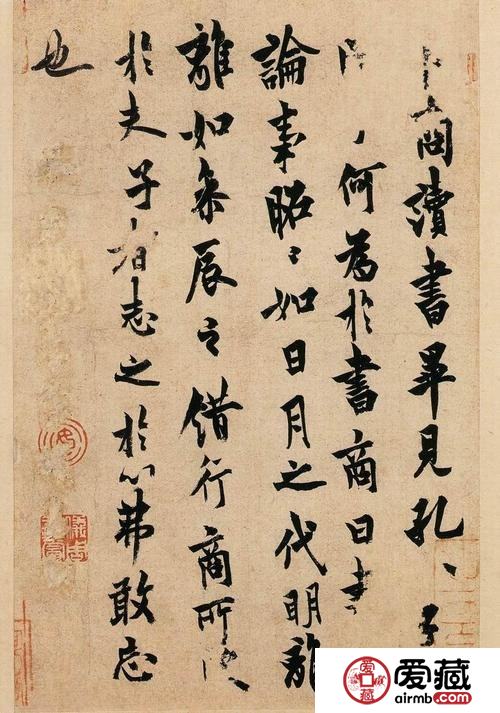 卜商讀書畢見孔〻子
何為於書商曰書
論事昭〻如日月之代明離
離如參辰之錯行商所
於夫子者志之於心弗敢忘
也
爱藏
爱藏
airmb.com